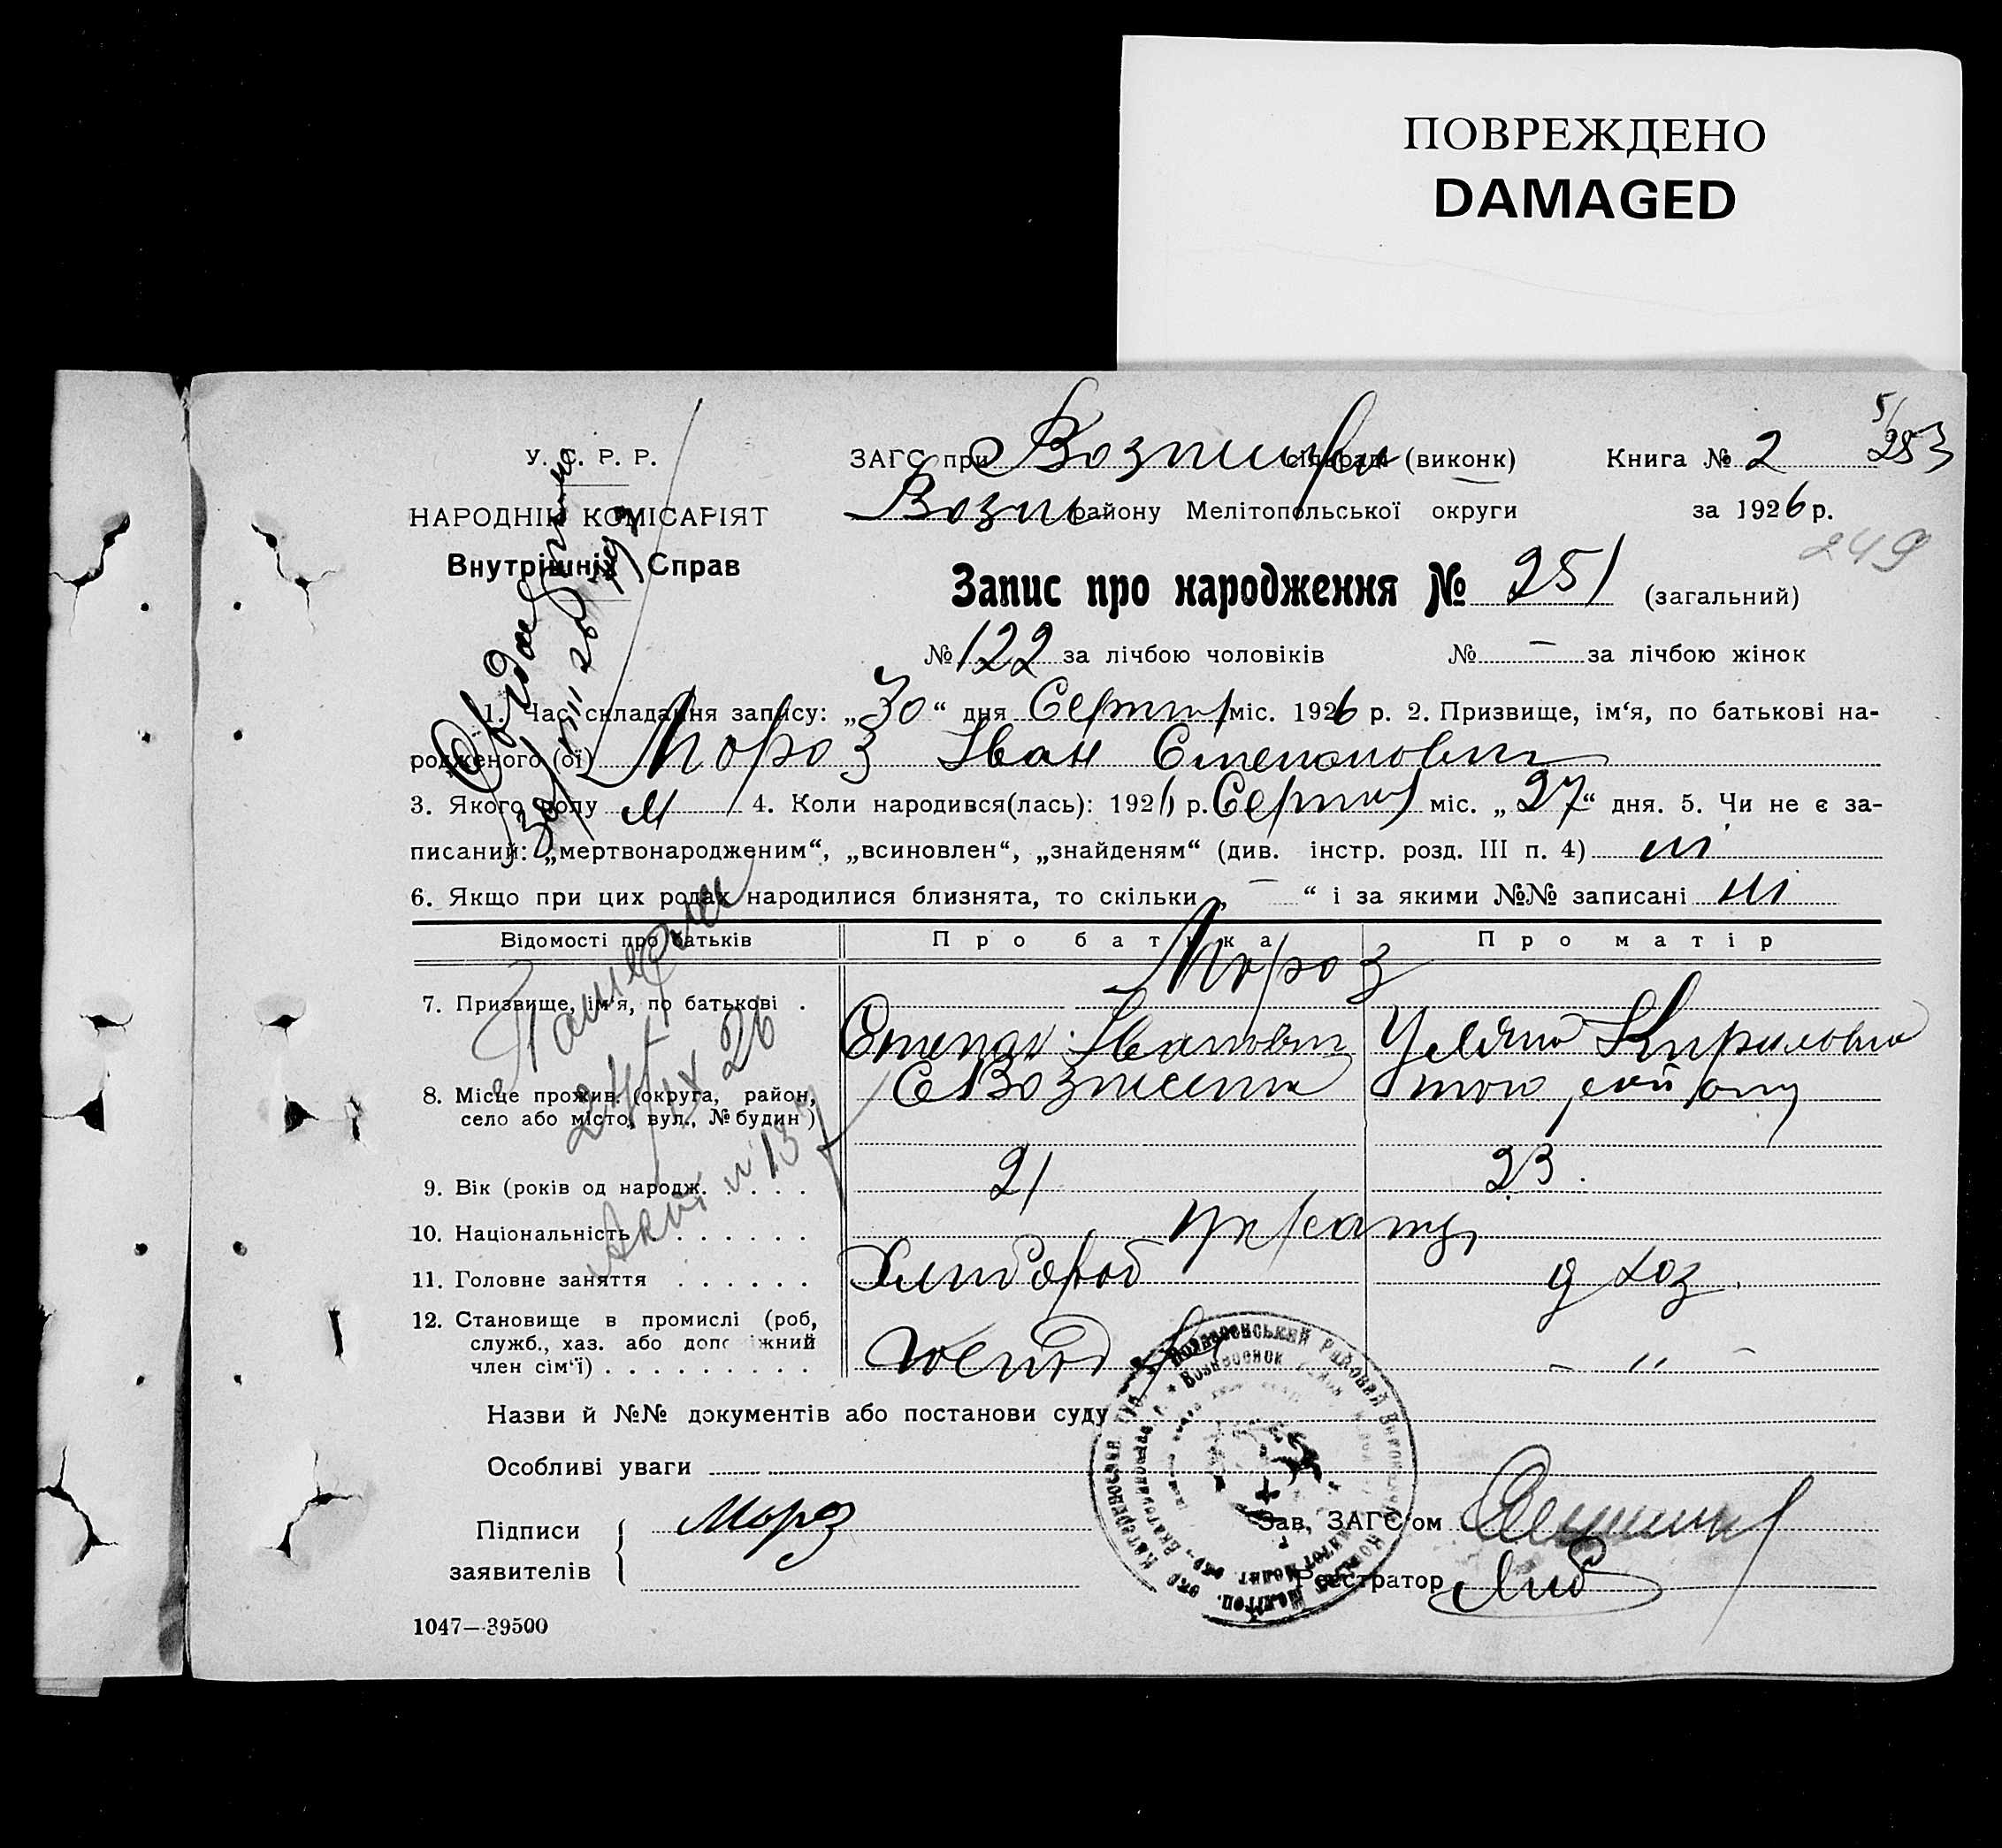 ПОВРЕЖДЕНО
DAMAGED
У. С. Р. Р.
НАРОДНІЙ КОМІСАРІЯТ
Внутрішніх Справ
ЗАГС при сільраді (виконк) Книга № 2
253
Возн району Мелітопольської округи за 1926 р.
249
Запис про народження № 251 (загальний)
№ 122 за лічбою чоловіків № — за лічбою жінок
1. Час складання запису: „30“ дня Серпня міс. 1926 р. 2. Призвище, ім‘я, по батькові на-
родженого (ої) Мороз Іван Степанович
3. Якого полу м 4. Коли народився(лась): 1926 р. Серпня міс. „27“ дня. 5. Чи не є за-
писаний: „мертвонародженим“, „всиновлен“, „знайденям“ (див. інстр. розд. III п. 4) ні
6. Якщо при цих родах народилися близнята, то скільки „—“ і за якими №№ записані ні
Відомості про батьків Про батька Про матір
Мороз
7. Призвище, ім‘я, по батькові .
Степан Іванович Уляна Кириловна
8. Місце прожив. (округа, район, село або місто, вул., № будин.)
9. Вік (років од народж. . . . . 21 23.
10. Національність . . . . . . Українці
11. Головне заняття . . . . . . Хлібороб д хоз.
12. Становище в промислі (роб,
служб., хаз. або допоміжний
член сім‘ї) . . . . . . . . . — „ —
Назви й №№ документів або постанови суду
Особливі уваги
Підписи
заявителів
Мороз
Зав. ЗАГС‘ом
Реєстратор
1047—39500